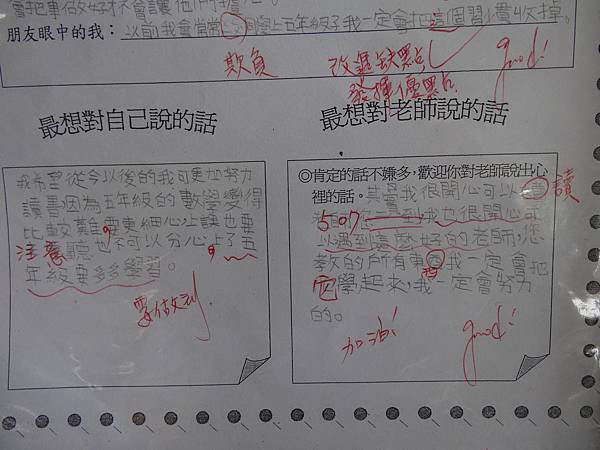 會把事做好才會讓他們
朋友眼中的我：以前我會常常 同學上五年級了我一定會把這個習慣收掉。
欺負
改進缺點
good!
發揮優點
最想對自己說的話
最想對老師說的話
我希望從今以後的我可更加努力
讀書因為五年級的數學變得
比較難，要更細心，上課也要
注意聽也不可以分心，上了五
年級要多多學習。
要做到
◎肯定的話不嫌多，歡迎你對老師說出心
裡的話。其實我很開心可以讀
507 我也很開心可
以遇到這麼好的老師，您
教的所有東西我一定會把
它學起來，我一定會努力
的。
加油！
good!